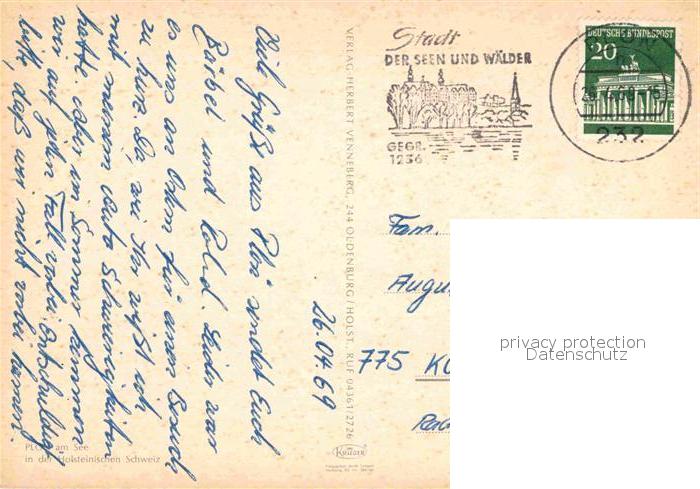 26.04.69
Viele Grüße aus Plön sendet Euch
Bärbel und Rolud. Leider war
es uns an Ostern für einen Besuch
zu kurz. Da wie Ihr wißt ich
mit meinem Auto Schwierigkeiten
hatte. Aber im Sommer kommen
wir auf jeden Fall vorbei. Entschuldigt
bitte, daß wir nicht vorbei kamen.
PLÖN am See
in der Holsteinischen Schweiz
VERLAG HERBERT VENNEBERG, 244 OLDENBURG/HOLST., RUF 04361/2726
Krüger
Stadt
DER SEEN UND WÄLDER
GEGR.
1236
DEUTSCHE BUNDESPOST
20
232
Fam.
Augu
775 KO
privacy protection
Datenschutz